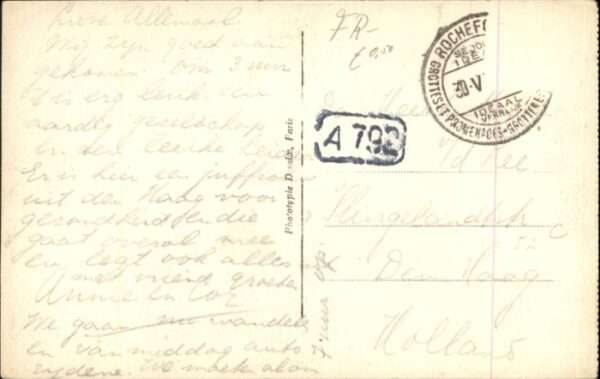 Lieve Allemaal
Wij zijn goed aan
gekomen. Om 3 uur
't is erg leuk en
aardig gezelschap
en een leuke leider
Er is hier een juffrouw
uit den Haag voor
gezondheid en die
gaat overal mee
en legt ook alles
met vriend. groeten
Annie en Cor
We gaan nu wandelen
en van middag auto
rijden. We moeten
Phototypie Paris
FR-
£0,50
ROCHEFORT
GROTTES ET PROMENADES - GROTTEN EN
30-V
IDEAAL
A 792
De
v/d Zee
Slingelandtstr
52 C
Den Haag
Holland